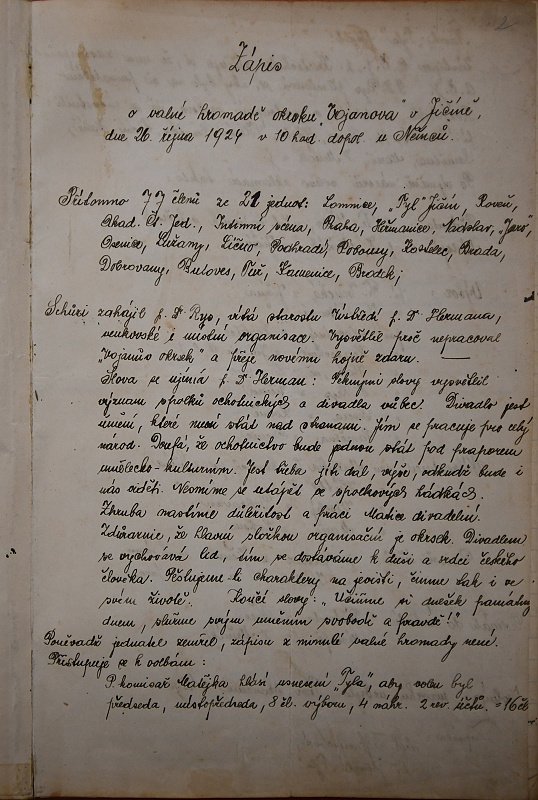 2
Zápis
o valné hromadě okrsku „Vojanova" v Jičíně,
dne 26. října 1924 v 10 hod. dopol. u Němců.
Přítomno 77 členů ze 21 jednot: Lomnice, „Tyl" Jičín, Roveň,
Akad. Čt. Jed., Intimní scéna, Praha, Heřmanice, Nadslav, „Jaro",
Osenice, Lužany, Líčno, Podhradí, Robousy, Kostelec, Brada,
Dobrovany, Butoves, Tuř, Kamenice, Brodek;
Schůzi zahájil f. Dr Rys, vítá starostu Ústředí f. Dr Hermana,
venkovské i místní organisace. Vysvětlil proč nepracoval
„Vojanův okrsek" a přeje novému hojně zdaru. —
Slova se ujímá f. Dr Herman: Pěknými slovy vysvětlil
význam spolků ochotnických a divadla vůbec. Divadlo jest
umění, které musí stát nad stranami. Jím se pracuje pro celý
národ. Doufá, že ochotnictvo bude jednou stát pod praporem
umělecko-kulturním. Jest třeba jíti dál, výše, odkudž bude i
nás viděti. Nesmíme se utápět ve spolkových hádkách.
Zhruba nastínil důležitost a práci Matice divadelní.
Zdůrazňuje, že hlavní složkou organisační je okrsek. Divadlem
se vychovává lid, tím se dostáváme k duši a srdci českého
člověka. Pěstujeme-li charaktery na jevišti, čiňme tak i ve
svém životě. Končí slovy: „Učiňme si dnešek památným
dnem, služme svým uměním svobodě a pravdě!"
Poněvadž jednatel zemřel, zápisu z minulé valné hromady není.
Přistupuje se k volbám:
P. komisař Matějka hlásí usnesení „Tyla", aby volen byl
předseda, místopředseda, 8 čl. výboru, 4 náhr. 2 rev. účtů. = 16 čl.